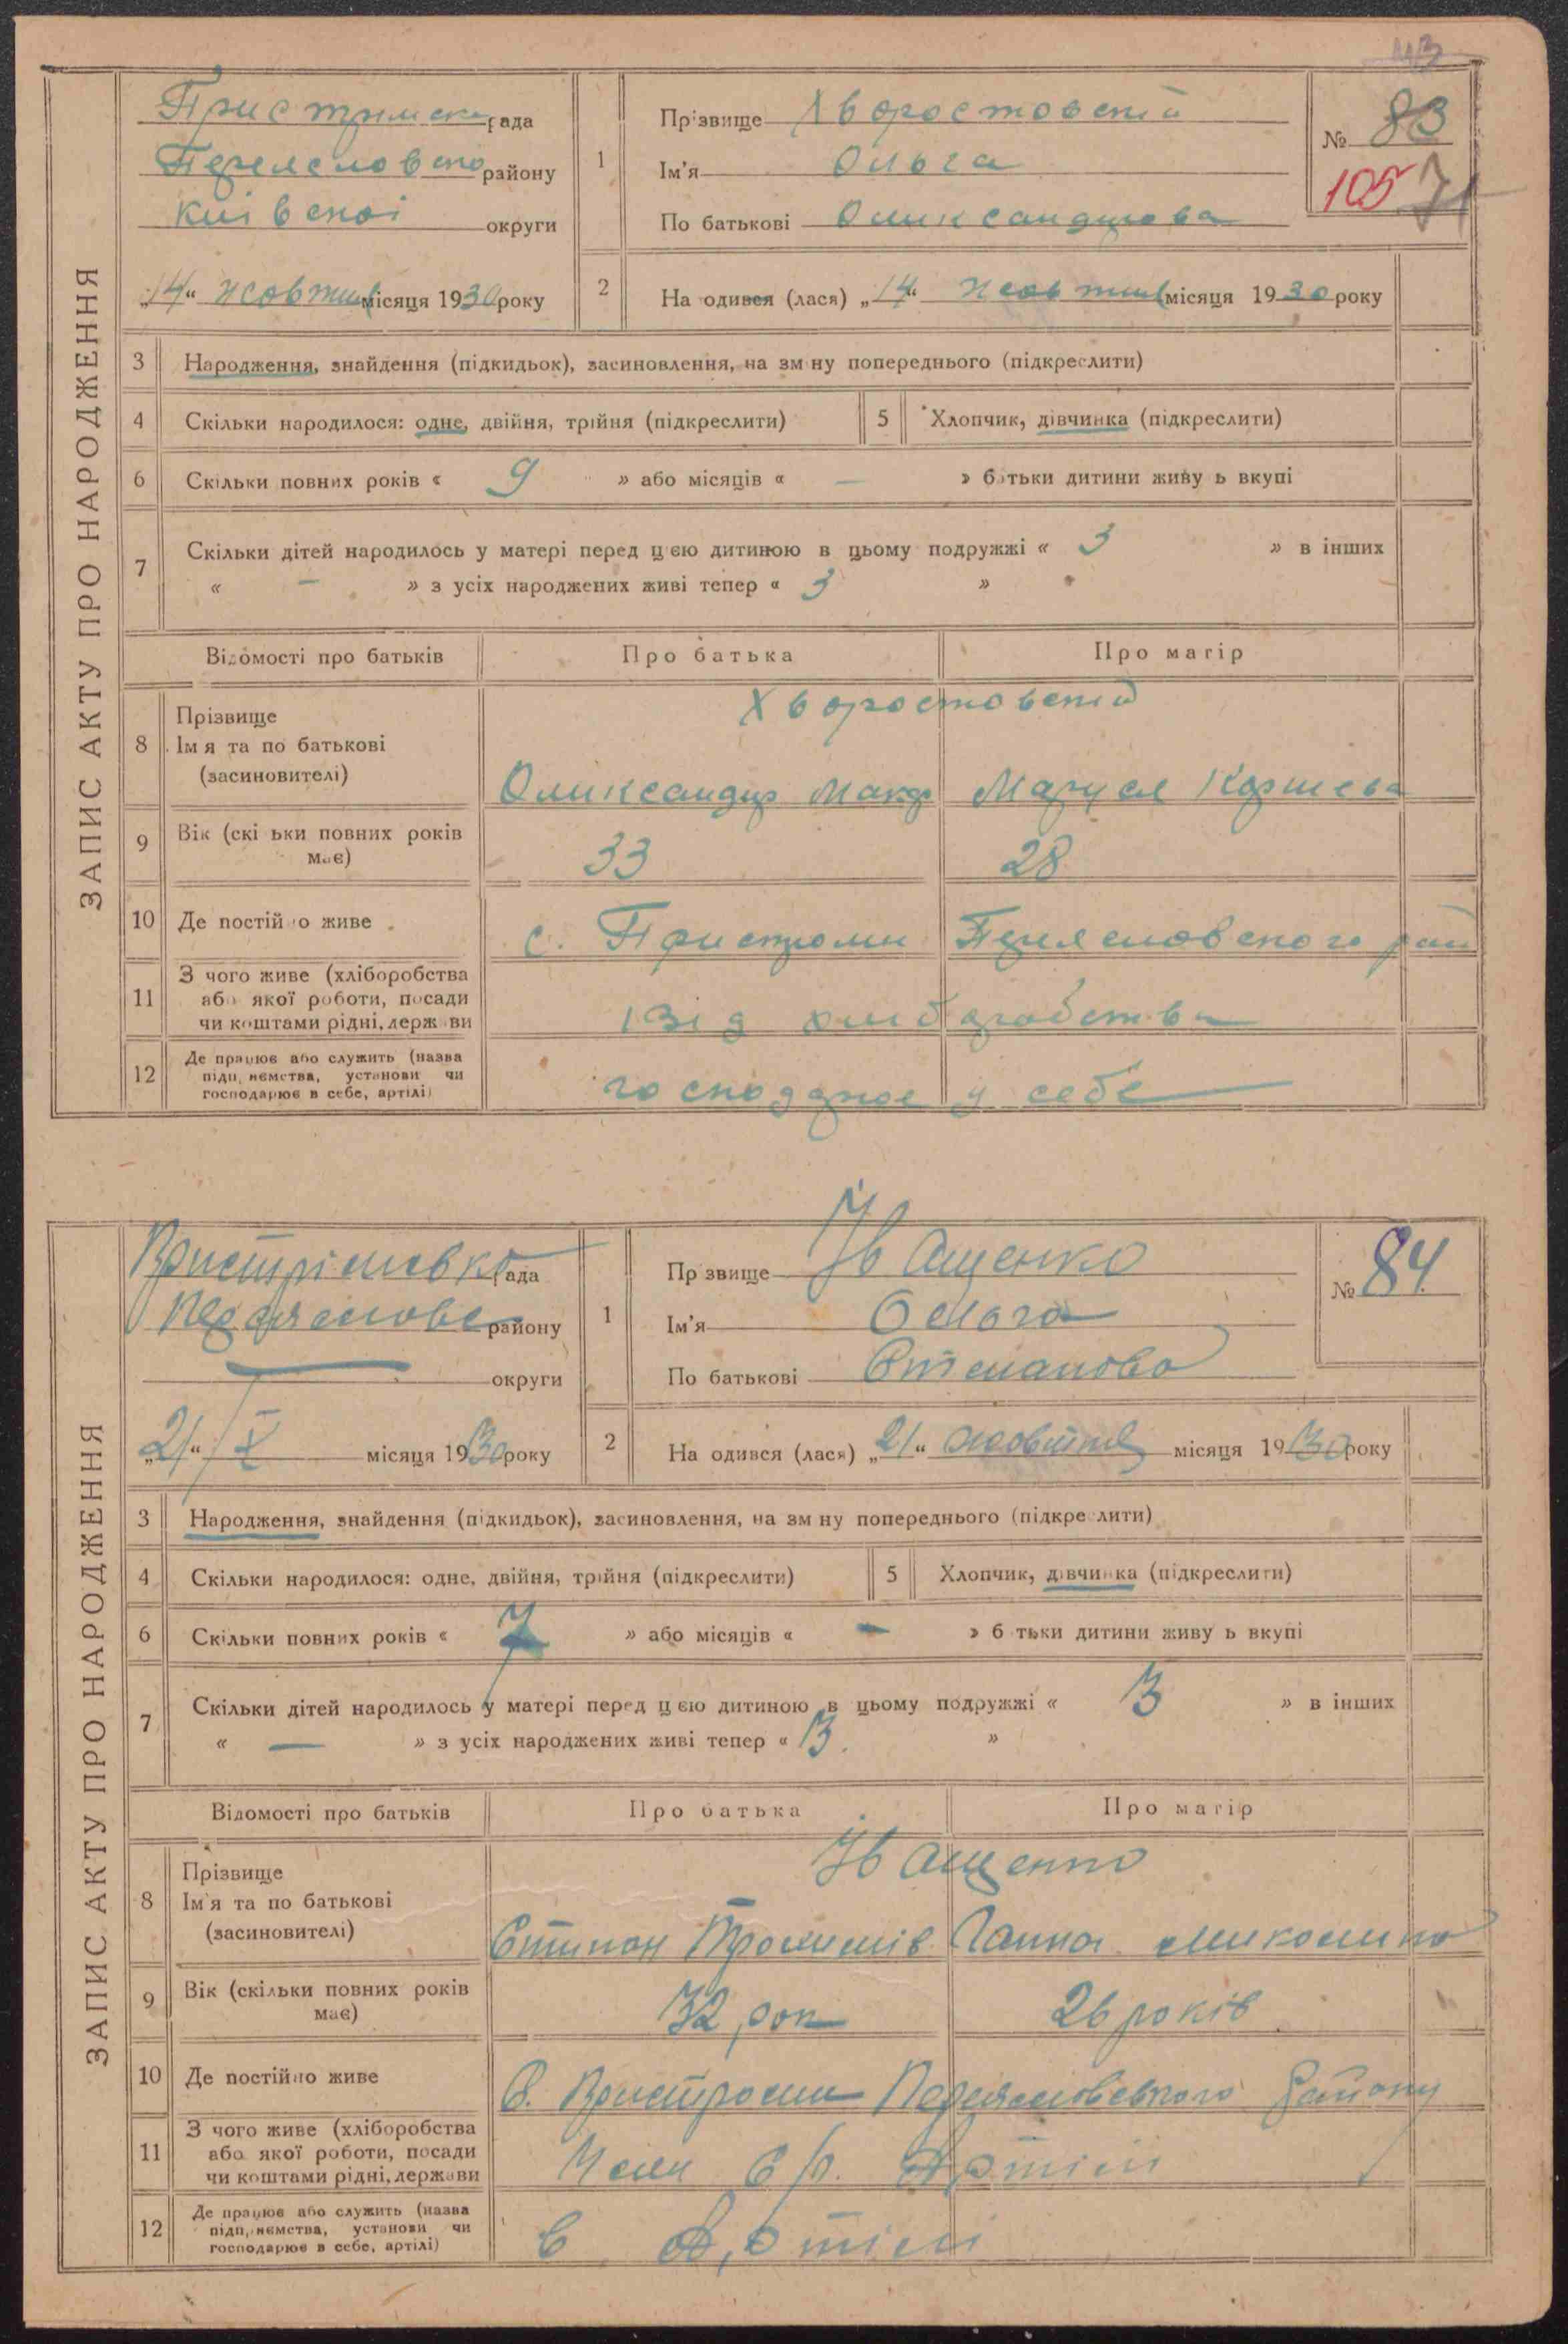 43
ЗАПИС АКТУ ПРО НАРОДЖЕННЯ
Пристримск рада
Переясловско району
Київскоі округи
„14“ жовтня місяця 1930 року
1
Пр звище Хворостовский
Ім'я Ольга
По батькові Олександрова
№ 83
105 71
2
На одився (лася) „14“ жовтня місяця 1930 року
3 Народження, знайдення (підкидьок), засиновлення, на зм ну попереднього (підкреслити)
4 Скільки народилося: одне, двійня, трійня (підкреслити) 5 Хлопчик, дівчинка (підкреслити)
6 Скільки повних років « 9 » або місяців « — » б тьки дитини живу ь вкупі
7 Скільки дітей народилось у матері перед ц єю дитиною в цьому подружжі « 3 » в інших
« — » з усіх народжених живі тепер « 3 »
Відомості про батьків Про батька Про матір
8 Прізвище
Ім я та по батькові
(засиновителі)
Хворостовский
Олександр Макар Маруся
9 Вік (скі ьки повних років
має)
33 28
10 Де постій о живе
с. Пристроми Переясловского рай
11 З чого живе (хліборобства
або якої роботи, посади
чи коштами рідні, держ ви
Від хліборобства
12 Де працює або служить (назва
підп, ємства, установи чи
господарює в себе, артілі)
господарює у себе
ЗАПИС АКТУ ПРО НАРОДЖЕННЯ
Пристрімовка рада
Переяслове району
— округи
„21“ X місяця 1930 року
1
Пр звище Іващенко
Ім'я Ольга
По батькові Степанова
№ 84
2
На одився (лася) „21“ жовтня місяця 1930 року
3 Народження, знайдення (підкидьок), засиновлення, на зм ну попереднього (підкре лити)
4 Скільки народилося: одне, двійня, трійня (підкреслити) 5 Хлопчик, дівчинка (підкреслити)
6 Скільки повних років « 7 » або місяців « — » б тьки дитини живу ь вкупі
7 Скільки дітей народилось у матері перед ц єю дитиною в цьому подружжі « 3 » в інших
« — » з усіх народжених живі тепер « 3. »
Відомості про батьків Про батька Про матір
8 Прізвище
Ім'я та по батькові
(засиновителі)
Іващенко
Степан Ганна
9 Вік (скільки повних років
має)
32 рок 26 років
10 Де постійно живе
с. Пристроми Переясловського району
11 З чого живе (хліборобства
або якої роботи, посади
чи коштами рідні, держави
Член с/г. Артілі
12 Де працює або служить (назва
підп, ємства, установи чи
господарює в себе, артілі)
в Артілі